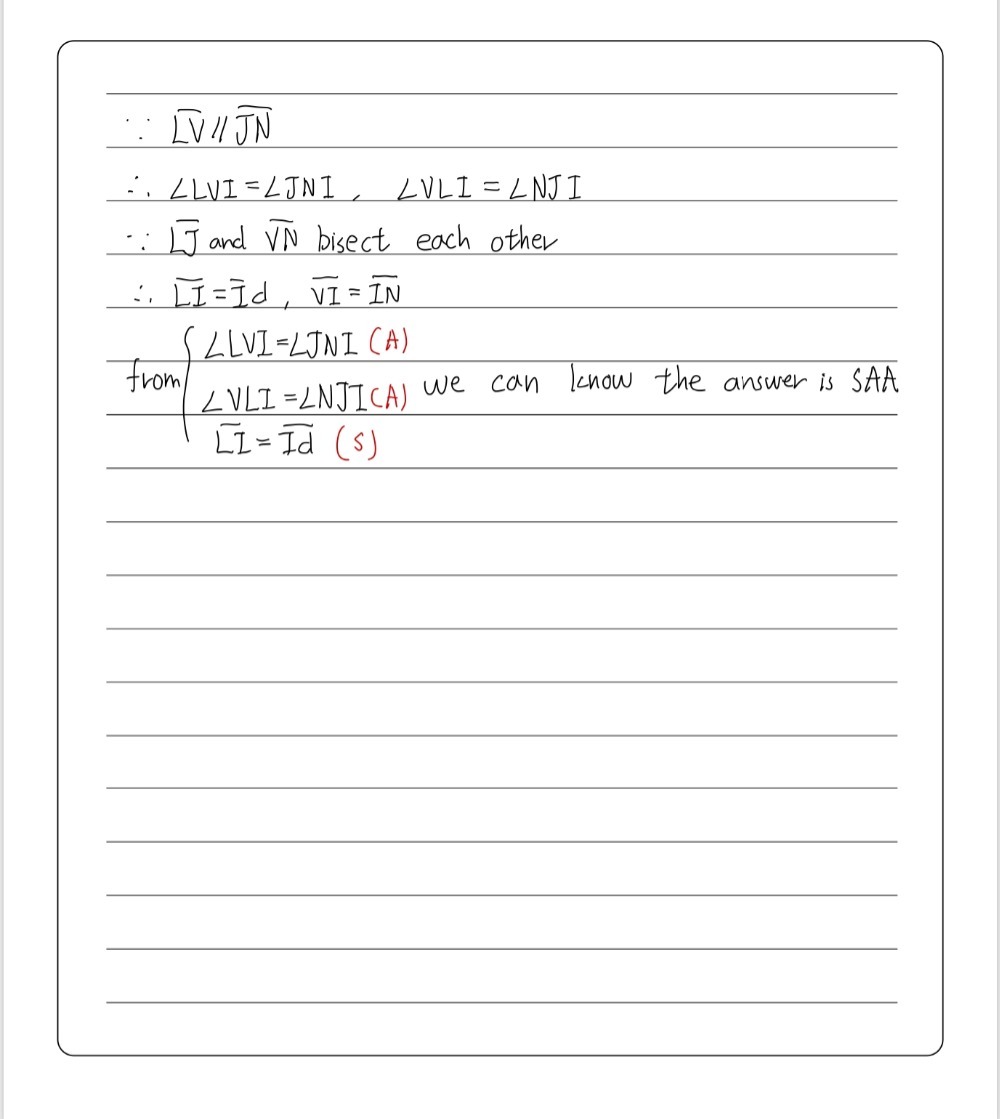 ∵ L̅V̅ // J̅N̅
∴ ∠LVI = ∠JNI , ∠VLI = ∠NJI
∵ L̅J̅ and V̅N̅ bisect each other
∴ L̅I̅ = I̅d , V̅I̅ = I̅N̅
∠LVI = ∠JNI (A)
from { ∠VLI = ∠NJI (A) we can know the answer is SAA
L̅I̅ = I̅d̅ (S)